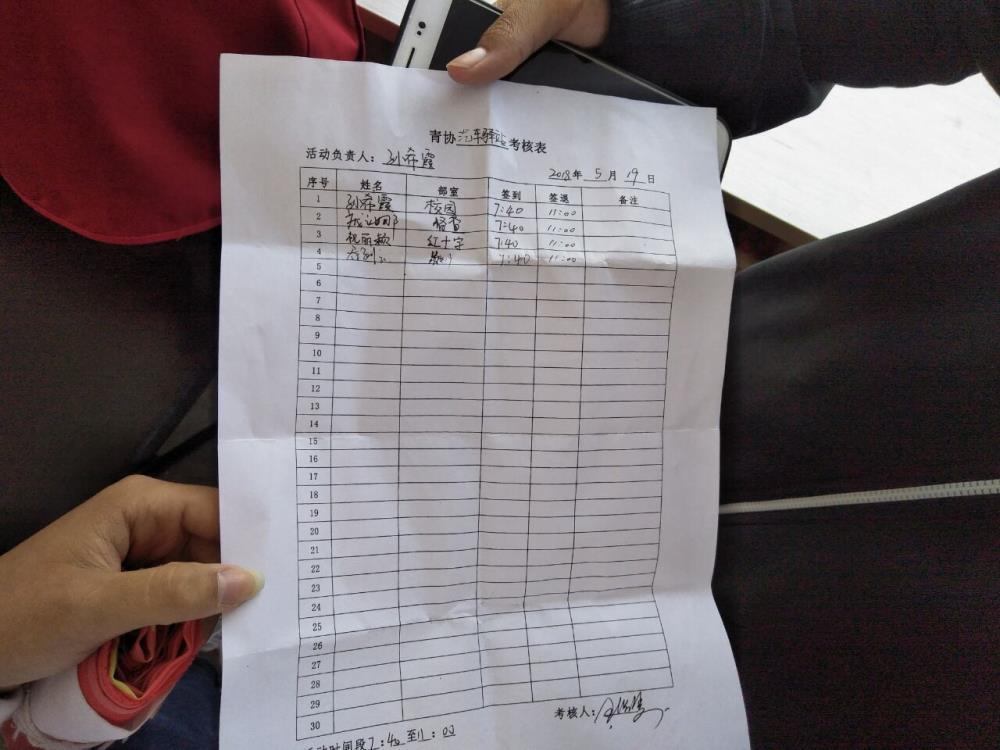 青协汽车驿站考核表
活动负责人：孙希霞
2018年5月19日
序号 姓名 部室 签到 签退 备注
1 孙希霞 校园 7:40 11:00
2 督查 7:40 11:00
3 祝丽颖 红十字 7:40 11:00
4 7:40 11:00
5
6
7
8
9
10
11
12
13
14
15
16
17
18
19
20
21
22
23
24
25
26
27
28
29
30
考核人：
活动时间段7:40至11:00